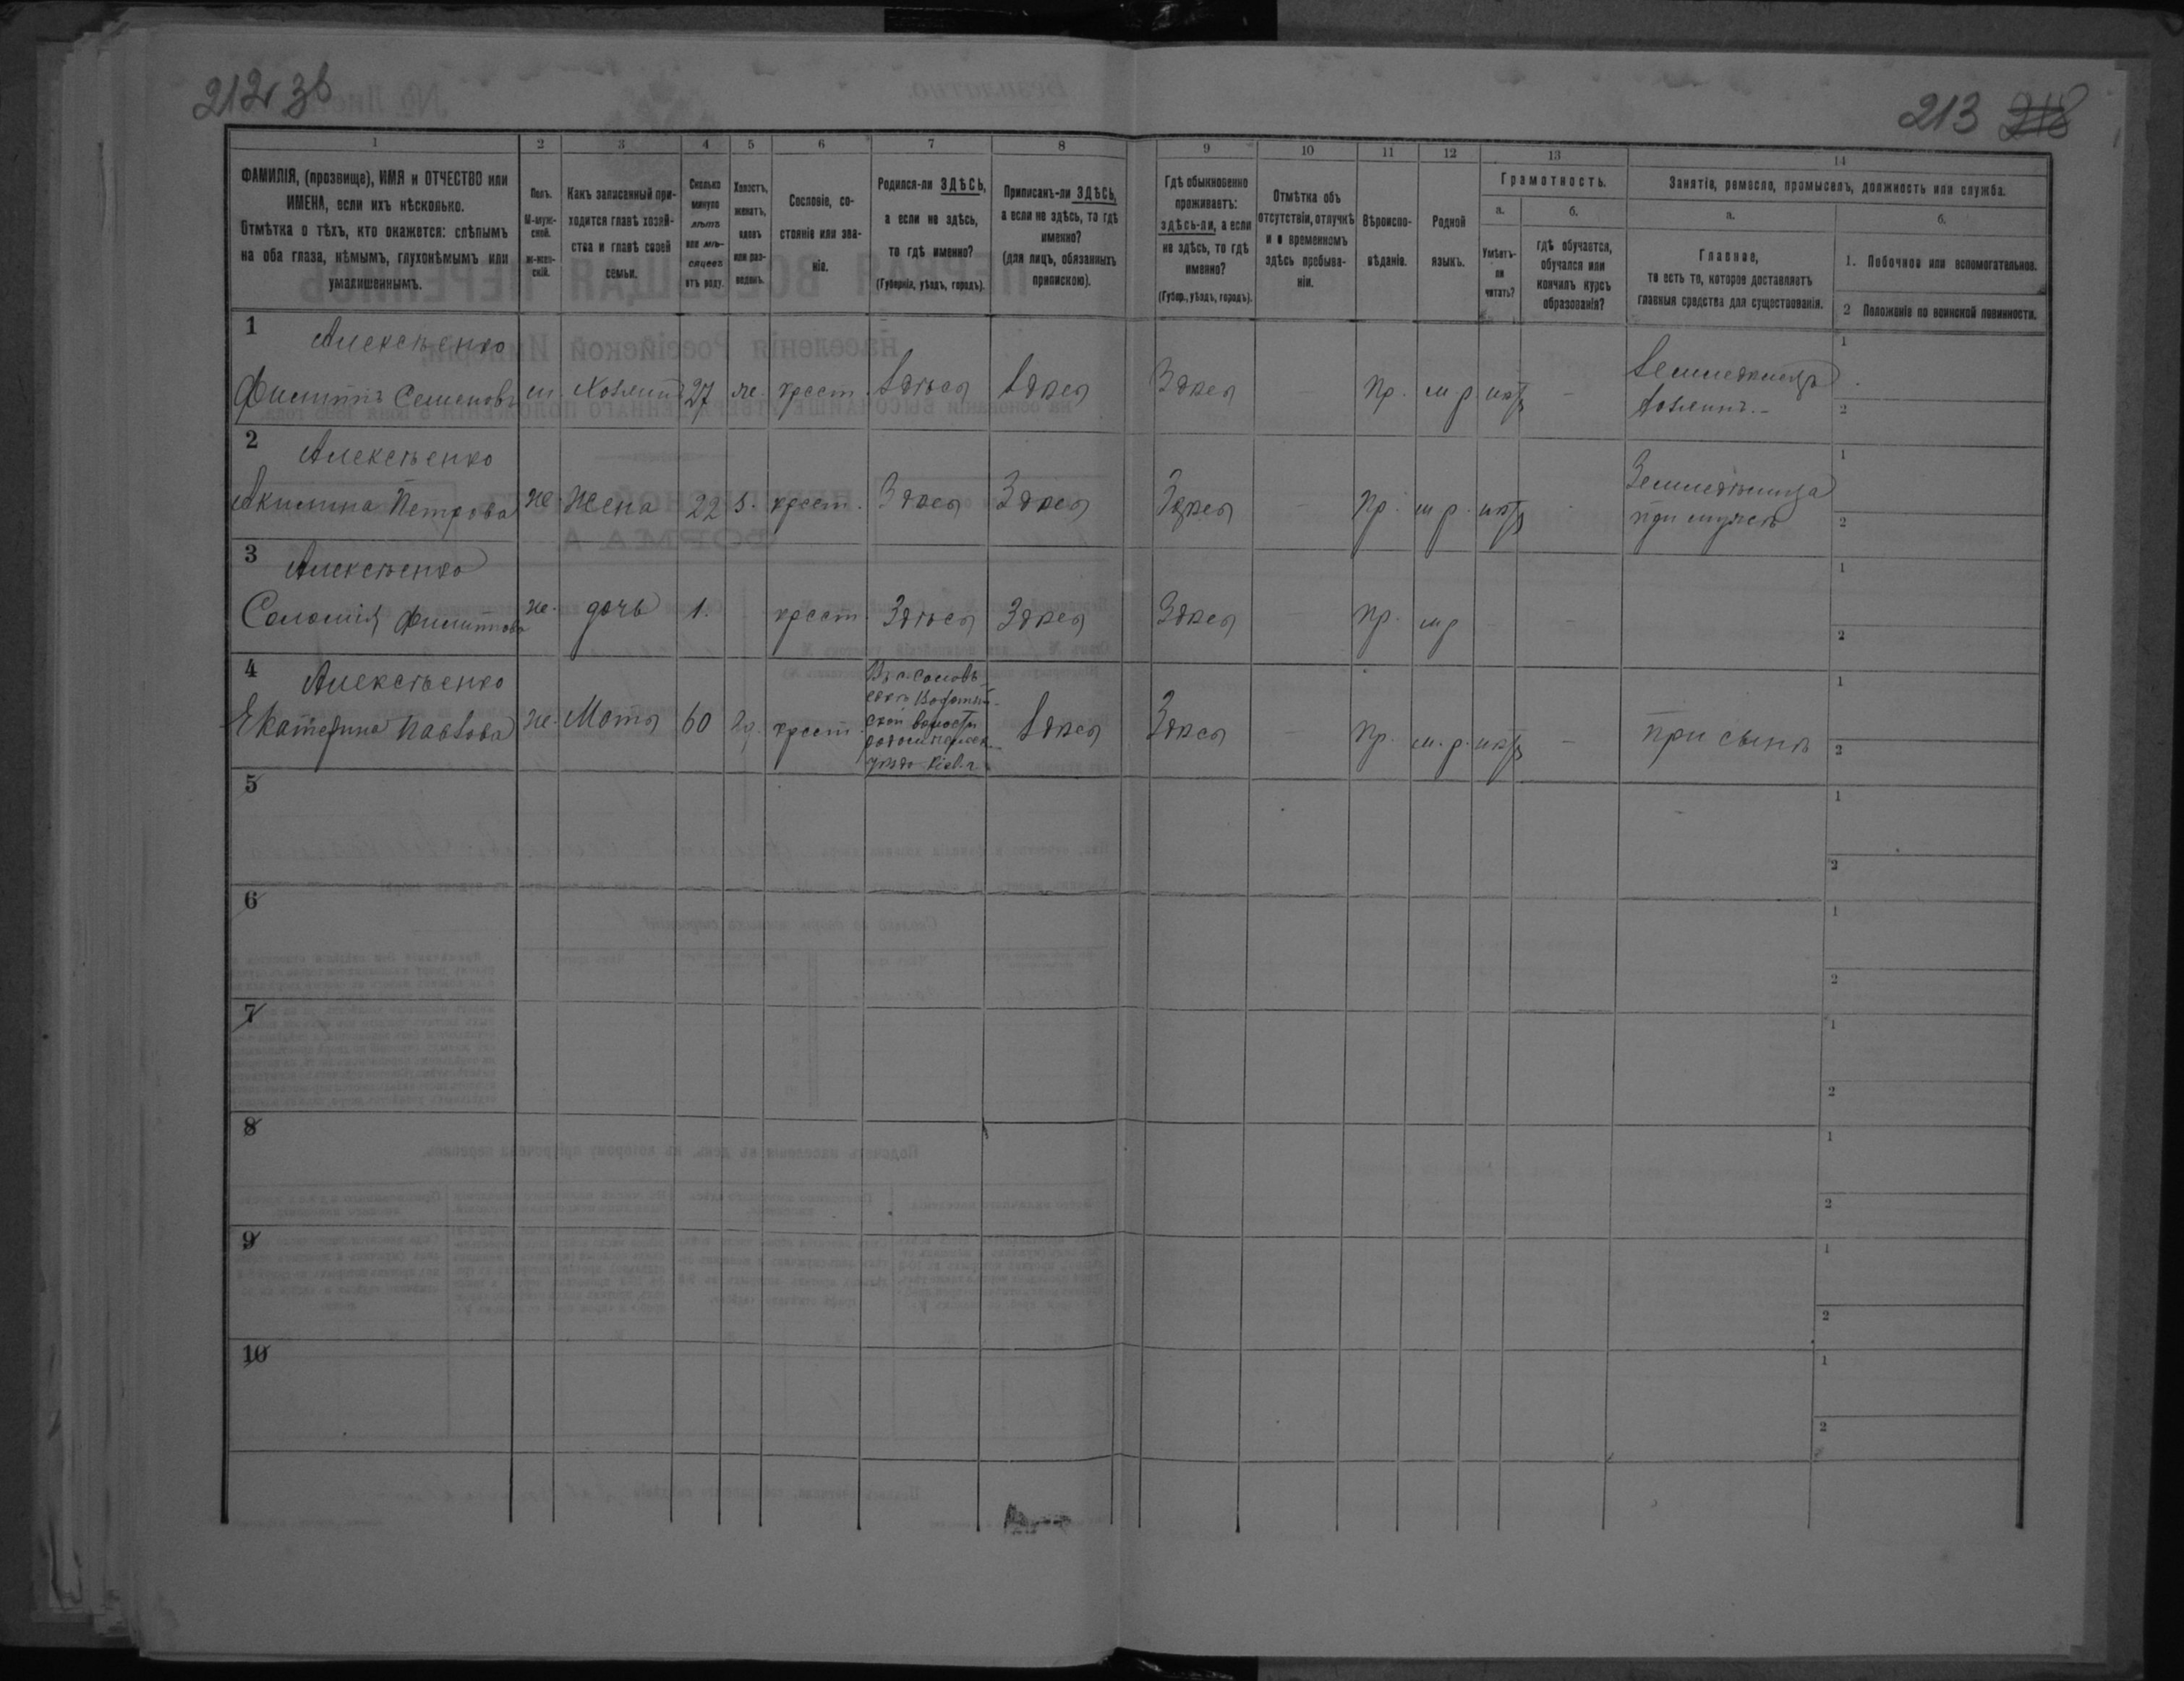 212 зв
213 218
1
2
3
4
5
6
7
8
9
10
11
12
13
14
ФАМИЛІЯ, (прозвище), ИМЯ и ОТЧЕСТВО или
ИМЕНА, если ихъ нѣсколько.
Отмѣтка о тѣхъ, кто окажется: слѣпымъ
на оба глаза, нѣмымъ, глухонѣмымъ или
умалишеннымъ.
Полъ.
М-муж-
ской.
ж-жен-
скій.
Какъ записанный при-
ходится главѣ хозяй-
ства и главѣ своей
семьи.
Сколько
минуло
лѣтъ
или мѣ-
сяцевъ
отъ роду.
Холостъ,
женатъ,
вдовъ
или раз-
веденъ.
Сословіе, со-
стояніе или зва-
ніе.
Родился-ли ЗДѢСЬ,
а если не здѣсь,
то гдѣ именно?
(Губернія, уѣздъ, городъ).
Приписанъ-ли ЗДѢСЬ,
а если не здѣсь, то гдѣ
именно?
(для лицъ, обязанныхъ
припискою).
Гдѣ обыкновенно
проживаетъ:
здѣсь-ли, а если
не здѣсь, то гдѣ
именно?
(Губер., уѣздъ, городъ).
Отмѣтка объ
отсутствіи, отлучкѣ
и о временномъ
здѣсь пребыва-
ніи.
Вѣроиспо-
вѣданіе.
Родной
языкъ.
Грамотность.
а.
Умѣетъ-
ли
читать?
б.
гдѣ обучается,
обучался или
кончилъ курсъ
образованія?
Занятіе, ремесло, промыселъ, должность или служба.
а.
Главное,
то есть то, которое доставляетъ
главныя средства для существованія.
б.
1. Побочное или вспомогательное.
2 Положеніе по воинской повинности.
1 Алексѣенко
Филиппъ Семеновъ м. хозяинъ 27 ж. крест. Здѣся Здѣся Здѣся — Пр. м р. нѣтъ — Земледѣлецъ
хозяинъ.-
1
2
2 Алексѣенко
Акилина Петрова ж. жена 22 з. крест. Здѣся Здѣся Здѣся — Пр. м р. нѣтъ Земледѣлица
при мужѣ
1
2
3 Алексѣенко
Соломія Филиппова ж. дочь 1. крест. Здѣся Здѣся Здѣся Пр. м р — —
1
2
4 Алексѣенко
Екатерина Павлова ж. Мать 60 вд. крест.
волости
уѣзда Кіев. г.
Здѣся Здѣся — Пр. м. р. нѣтъ — при сынѣ
1
2
5
1
2
6
1
2
7
1
2
8
1
2
9
1
2
10
1
2